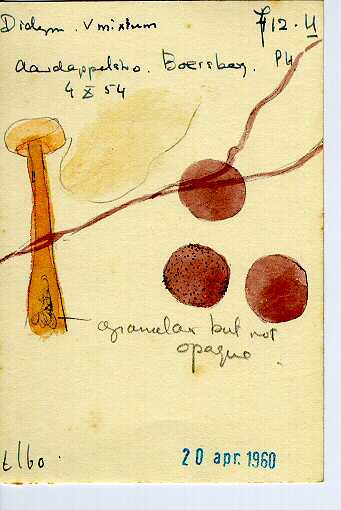 Didym. v mixtum
F12.4
Aardappelstro. Boersberg. PH
4 X 54
granular but not
opaque
t/60.
20 apr. 1960